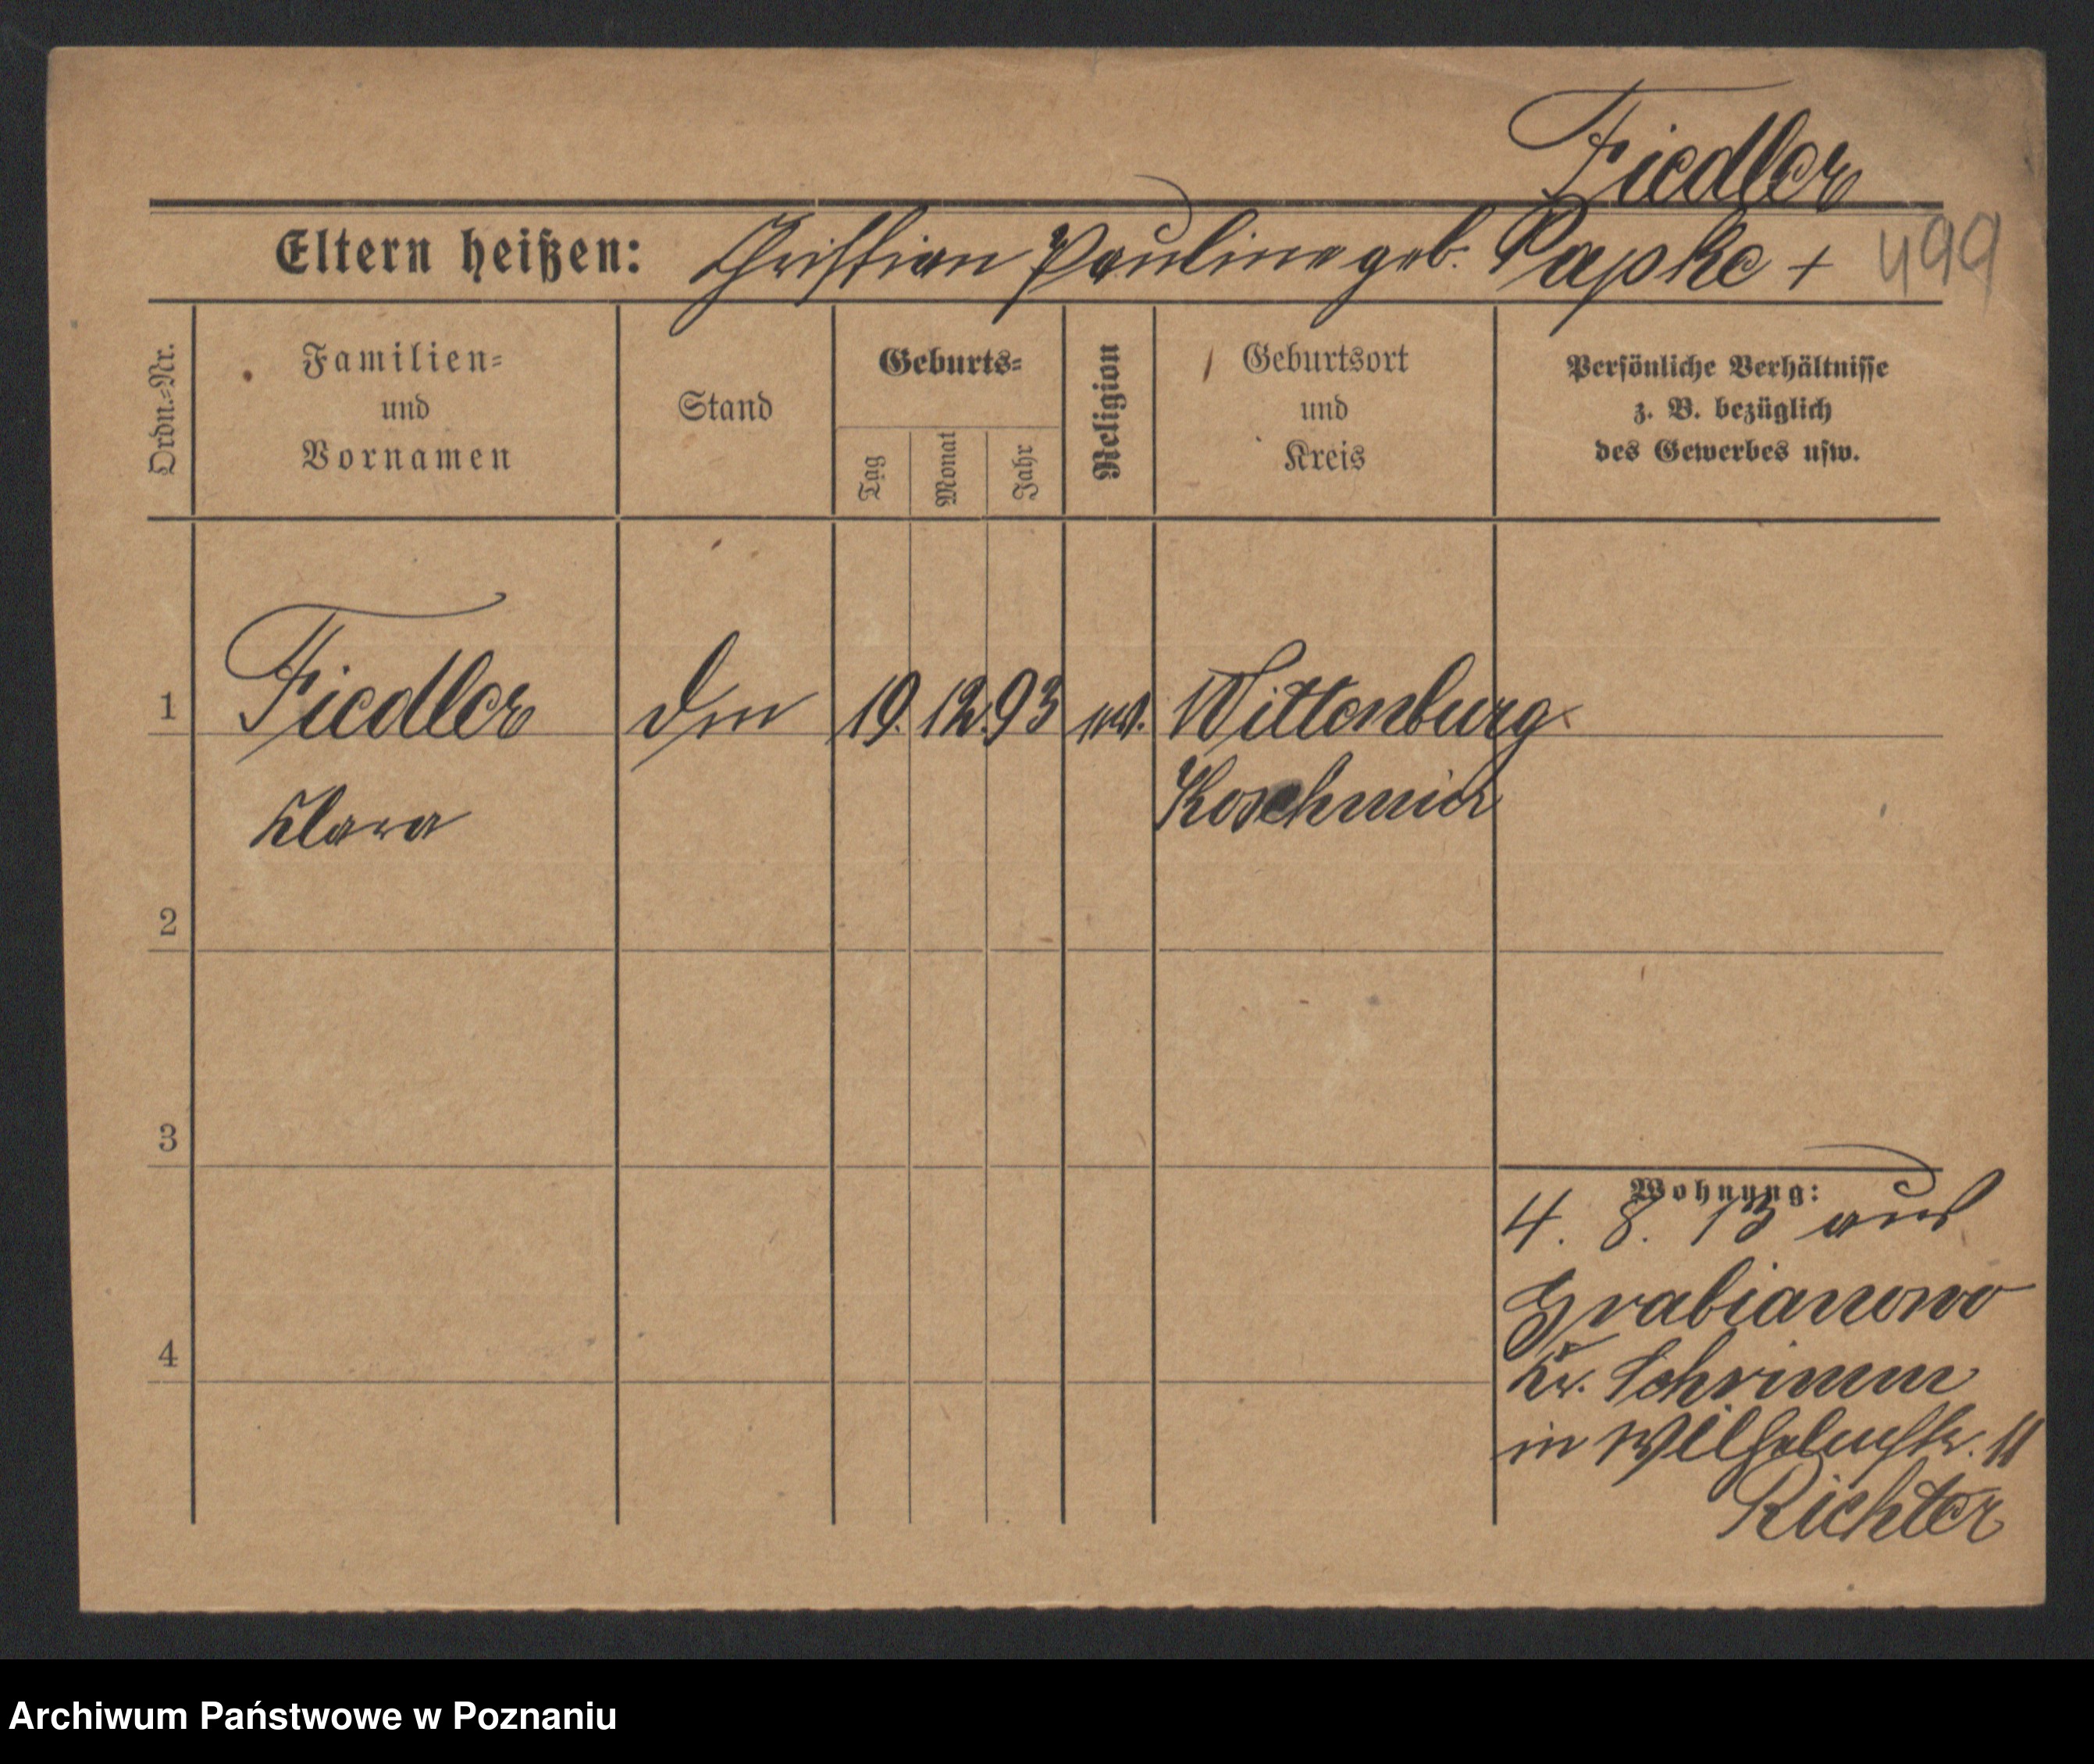 Fiedler
Eltern heißen: Christian Pauline geb. Papke +
499
Ordn.-Nr.
Familien-
und
Vornamen
Stand
Geburts-
Tag
Monat
Jahr
Religion
Geburtsort
und
Kreis
Persönliche Verhältnisse
z. B. bezüglich
des Gewerbes usw.
1 Fiedler 19. 12. 93 ev. Wittenburg
Klara Koschmin
2
3
4
Wohnung:
4. 8. 13 aus
Grabianowo
Kr. Schrimm
in Wilhelmstr. 11
Richter
Archiwum Państwowe w Poznaniu